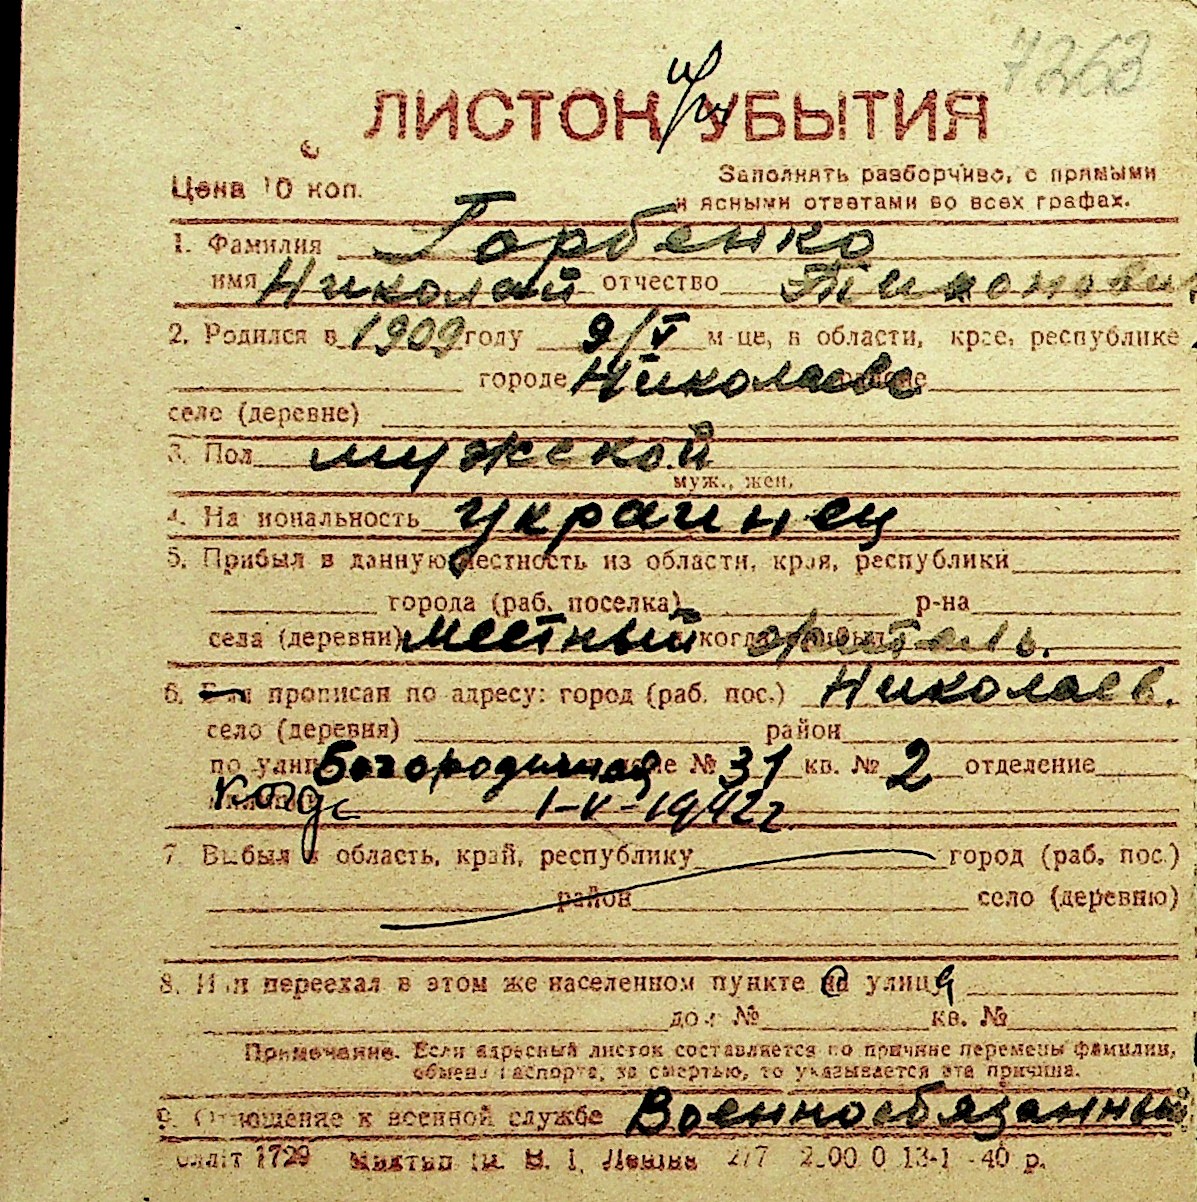 7263
ЛИСТОК УБЫТИЯ
при
Цена 10 коп.
Заполнять разборчиво, с прямыми
и ясными ответами во всех графах.
1. Фамилия Горбенко
имя Николай отчество Тихонович
2. Родился в 1909 году 9/V м-це, в области, крае, республике
городе Николаеве
село (деревне)
3. Пол мужской
муж., жен.
4. Национальность украинец
5. Прибыл в данную местность из области, края, республики
города (раб. поселка) р-на
села (деревни) местный когда житель.
6. Был прописан по адресу: город (раб. пос.) Николаев.
село (деревня) район
по улице Богородичная № 31 кв. № 2 отделение
когда 1-V-1942г.
7. Выбыл в область, край, республику город (раб. пос.)
район село (деревню)
8. Или переехал в этом же населенном пункте с улиця
дом № кв. №
Примечание. Если адресный листок составляется по причине перемены фамилии,
обмена паспорта, за смертью, то указывается эта причина.
9. Отношение к военной службе Военнообязанный
1729 В. І. Леніна 2/7 13-1 -40 р.